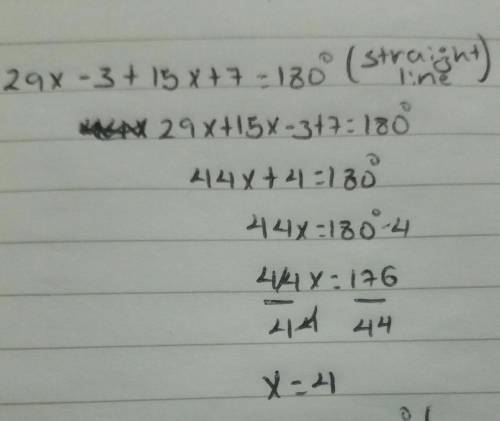 29x - 3 + 15x + 7 = 180° (straight line)
29x + 15x - 3 + 7 = 180°
44x + 4 = 180°
44x = 180° - 4
44x = 176
44 44
x = 4